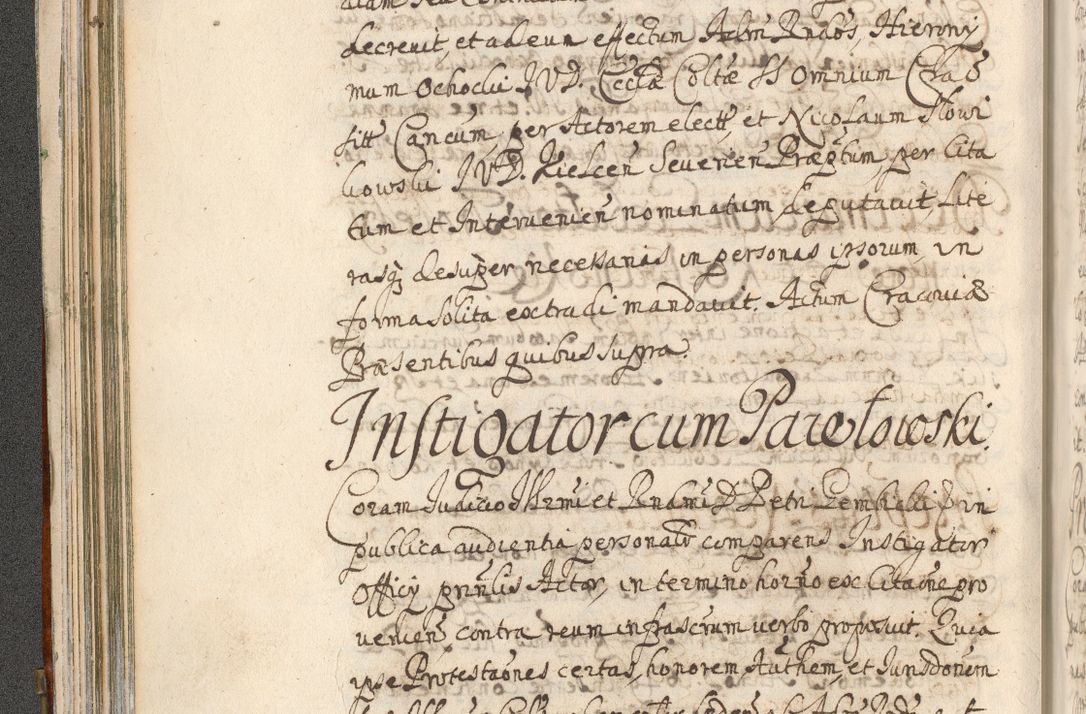 decrevit, et ad eum effectum Adm Rndos, Hierony
mum Ochocki JVD. Eccliæ Coltæ SS Omnium
Cancum, per Actorem elect, et Nicolaum Slowi
kowski JVD. Kielcen Severien Præptum, per Cita
tum et Intervenien nominatum deputavit, Lite
rasq desuper necessarias in personas ipsorum, in
forma solita extradi mandavit. Actum Cracoviæ
Præsentibus quibus supra.
Instigator cum Pawłowski.
Coram Judicio Illrmi et Rndmi D Petri Gembicki in
publica audientia personalr comparens Instigator
Officy prnlis Actor, in termino horno ex citaone pro
venien contra reum infrascrum verbo proposuit. Quia
ipse Protestaones certas, honorem Authem, et Jurisdonem